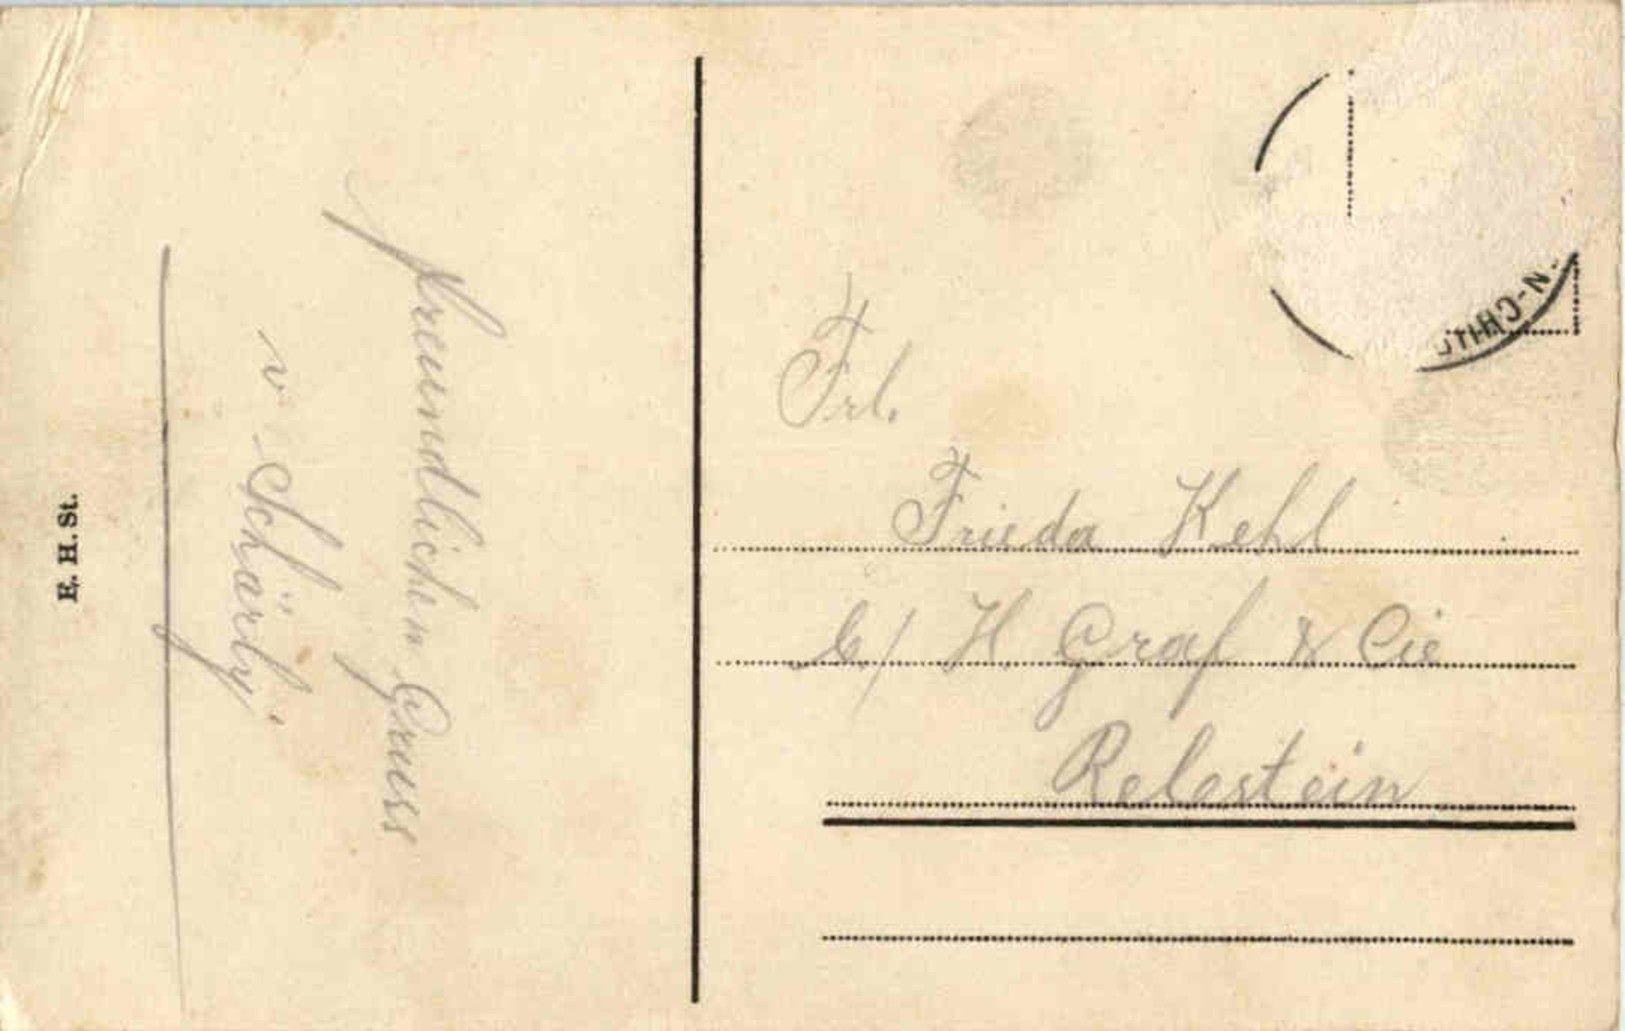 E. H. St.
Freundlichen Gruss
v Schärly
Frl.
Frieda Kehl
b/ H. Graf & Cie
Rebstein